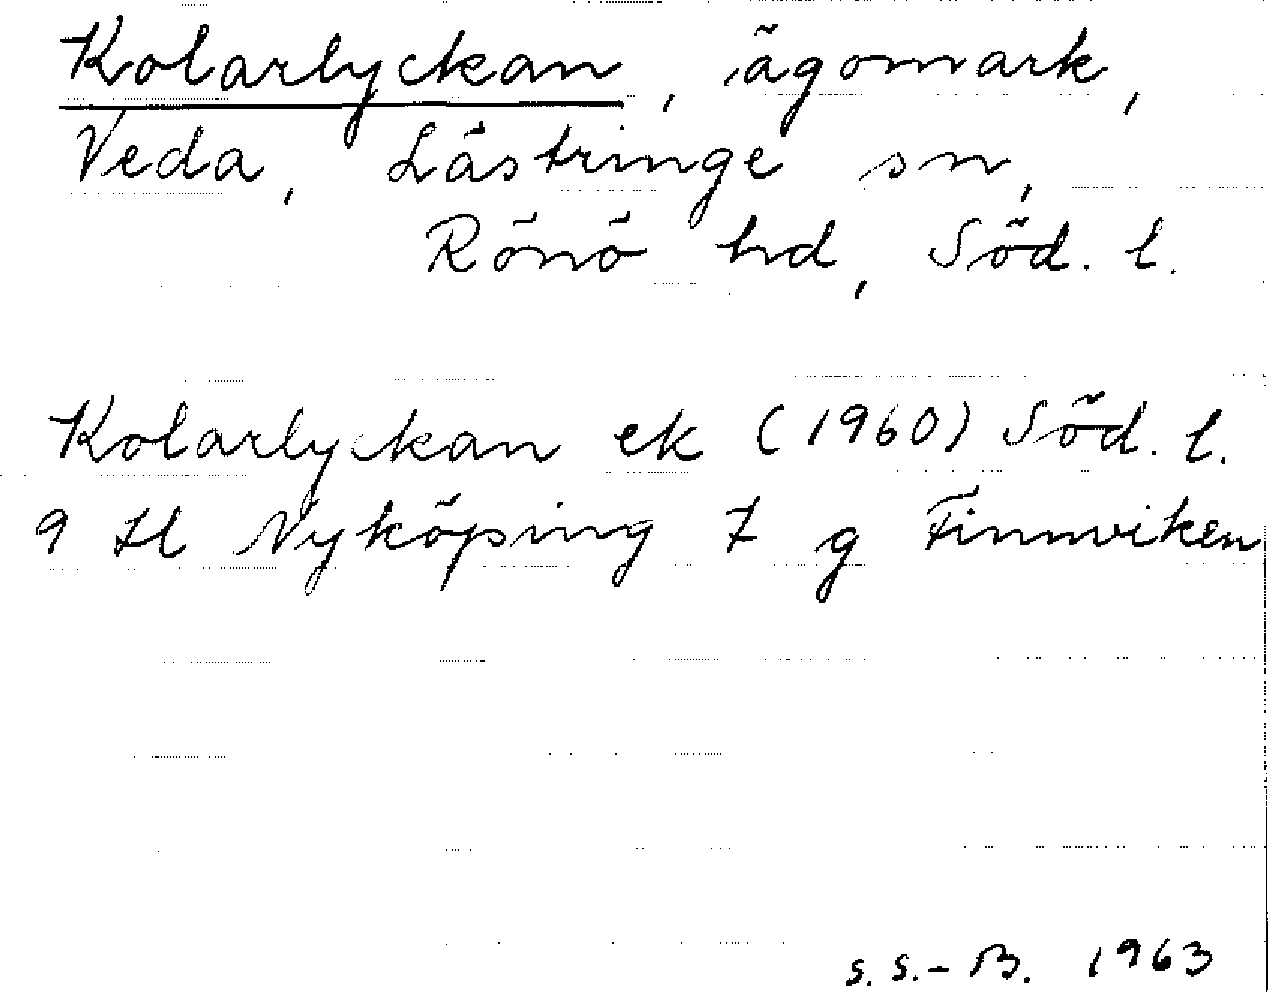 Kolarlyckan, ägomark,
Veda, Lästringe sn,
Rönö hd, Söd. l.
Kolarlyckan ek (1960) Söd. l.
9 H Nyköping 7 g Finnviken
s. s.-B. 1963